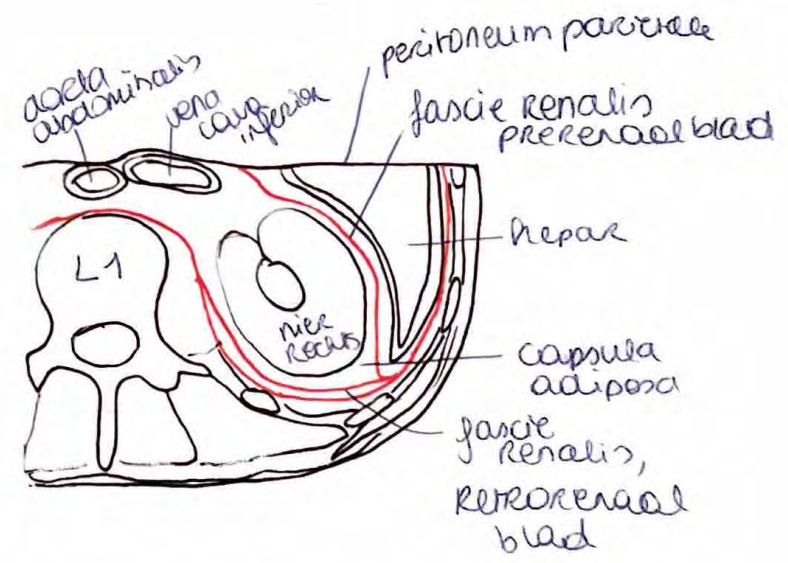 aorta
abdominalis
vena
cava
inferior
peritoneum parietale
fascie renalis
prerenaal blad
hepar
L1
nier
rechts
capsula
adiposa
fascie
renalis,
retrorenaal
blad